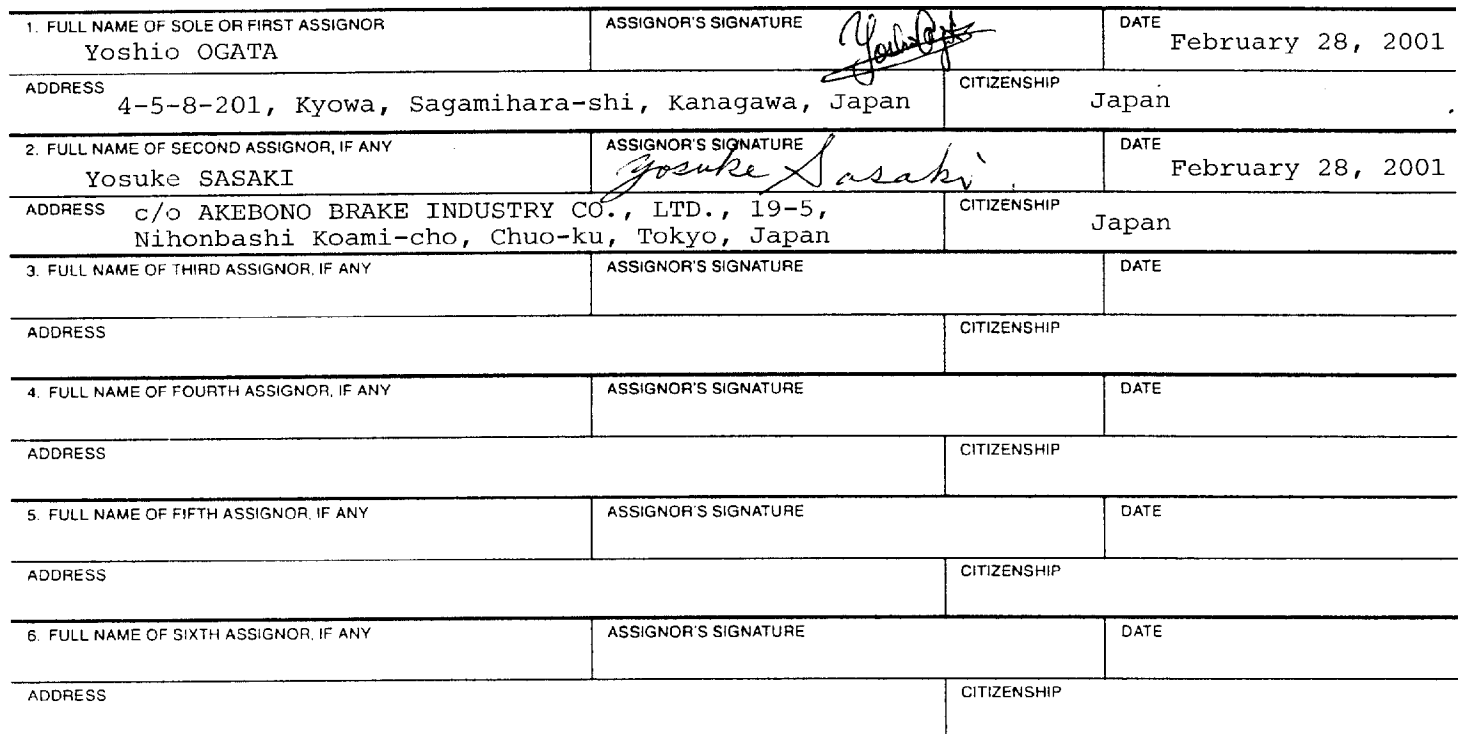 1. FULL NAME OF SOLE OR FIRST ASSIGNOR ASSIGNOR'S SIGNATURE DATE
Yoshio OGATA Yoshio Ogata February 28, 2001
ADDRESS CITIZENSHIP
4-5-8-201, Kyowa, Sagamihara-shi, Kanagawa, Japan Japan
2. FULL NAME OF SECOND ASSIGNOR, IF ANY ASSIGNOR'S SIGNATURE DATE
Yosuke SASAKI Yosuke Sasaki. February 28, 2001
ADDRESS c/o AKEBONO BRAKE INDUSTRY CO., LTD., 19-5, CITIZENSHIP
Nihonbashi Koami-cho, Chuo-ku, Tokyo, Japan Japan
3. FULL NAME OF THIRD ASSIGNOR, IF ANY ASSIGNOR'S SIGNATURE DATE
ADDRESS CITIZENSHIP
4. FULL NAME OF FOURTH ASSIGNOR, IF ANY ASSIGNOR'S SIGNATURE DATE
ADDRESS CITIZENSHIP
5. FULL NAME OF FIFTH ASSIGNOR, IF ANY ASSIGNOR'S SIGNATURE DATE
ADDRESS CITIZENSHIP
6. FULL NAME OF SIXTH ASSIGNOR, IF ANY ASSIGNOR'S SIGNATURE DATE
ADDRESS CITIZENSHIP